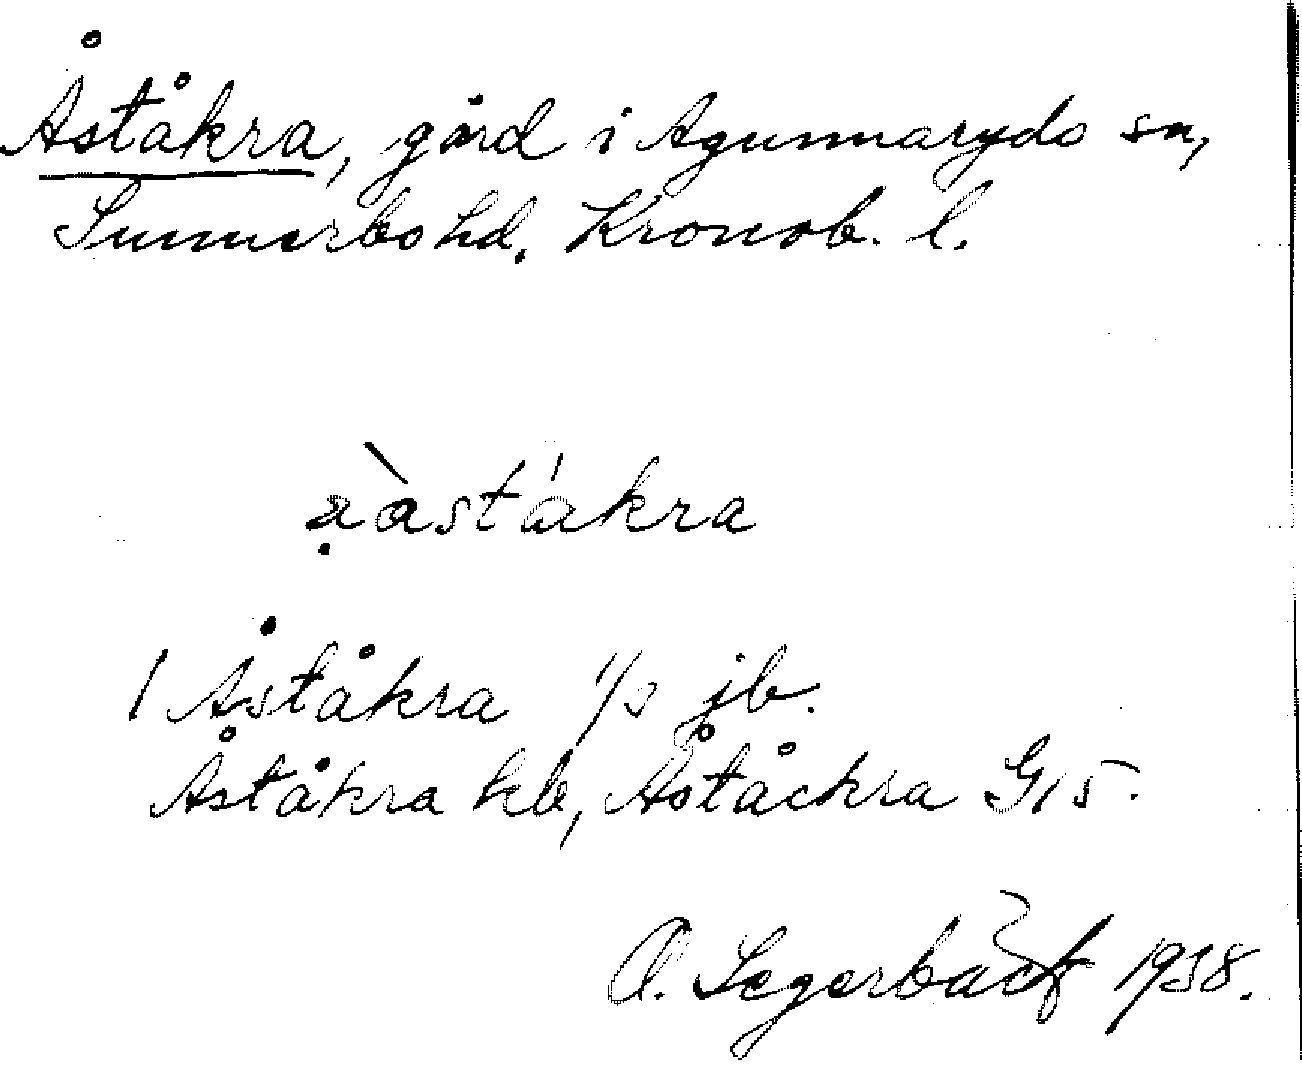 Åståkra, gård i Agunnaryds sn,
Sunnerbo hd. Kronob. l.
ạàstákra
1 Åståkra 1/3 jb.
Åståkra kb, Åståckra G15.
A. Segerbäck 1938.